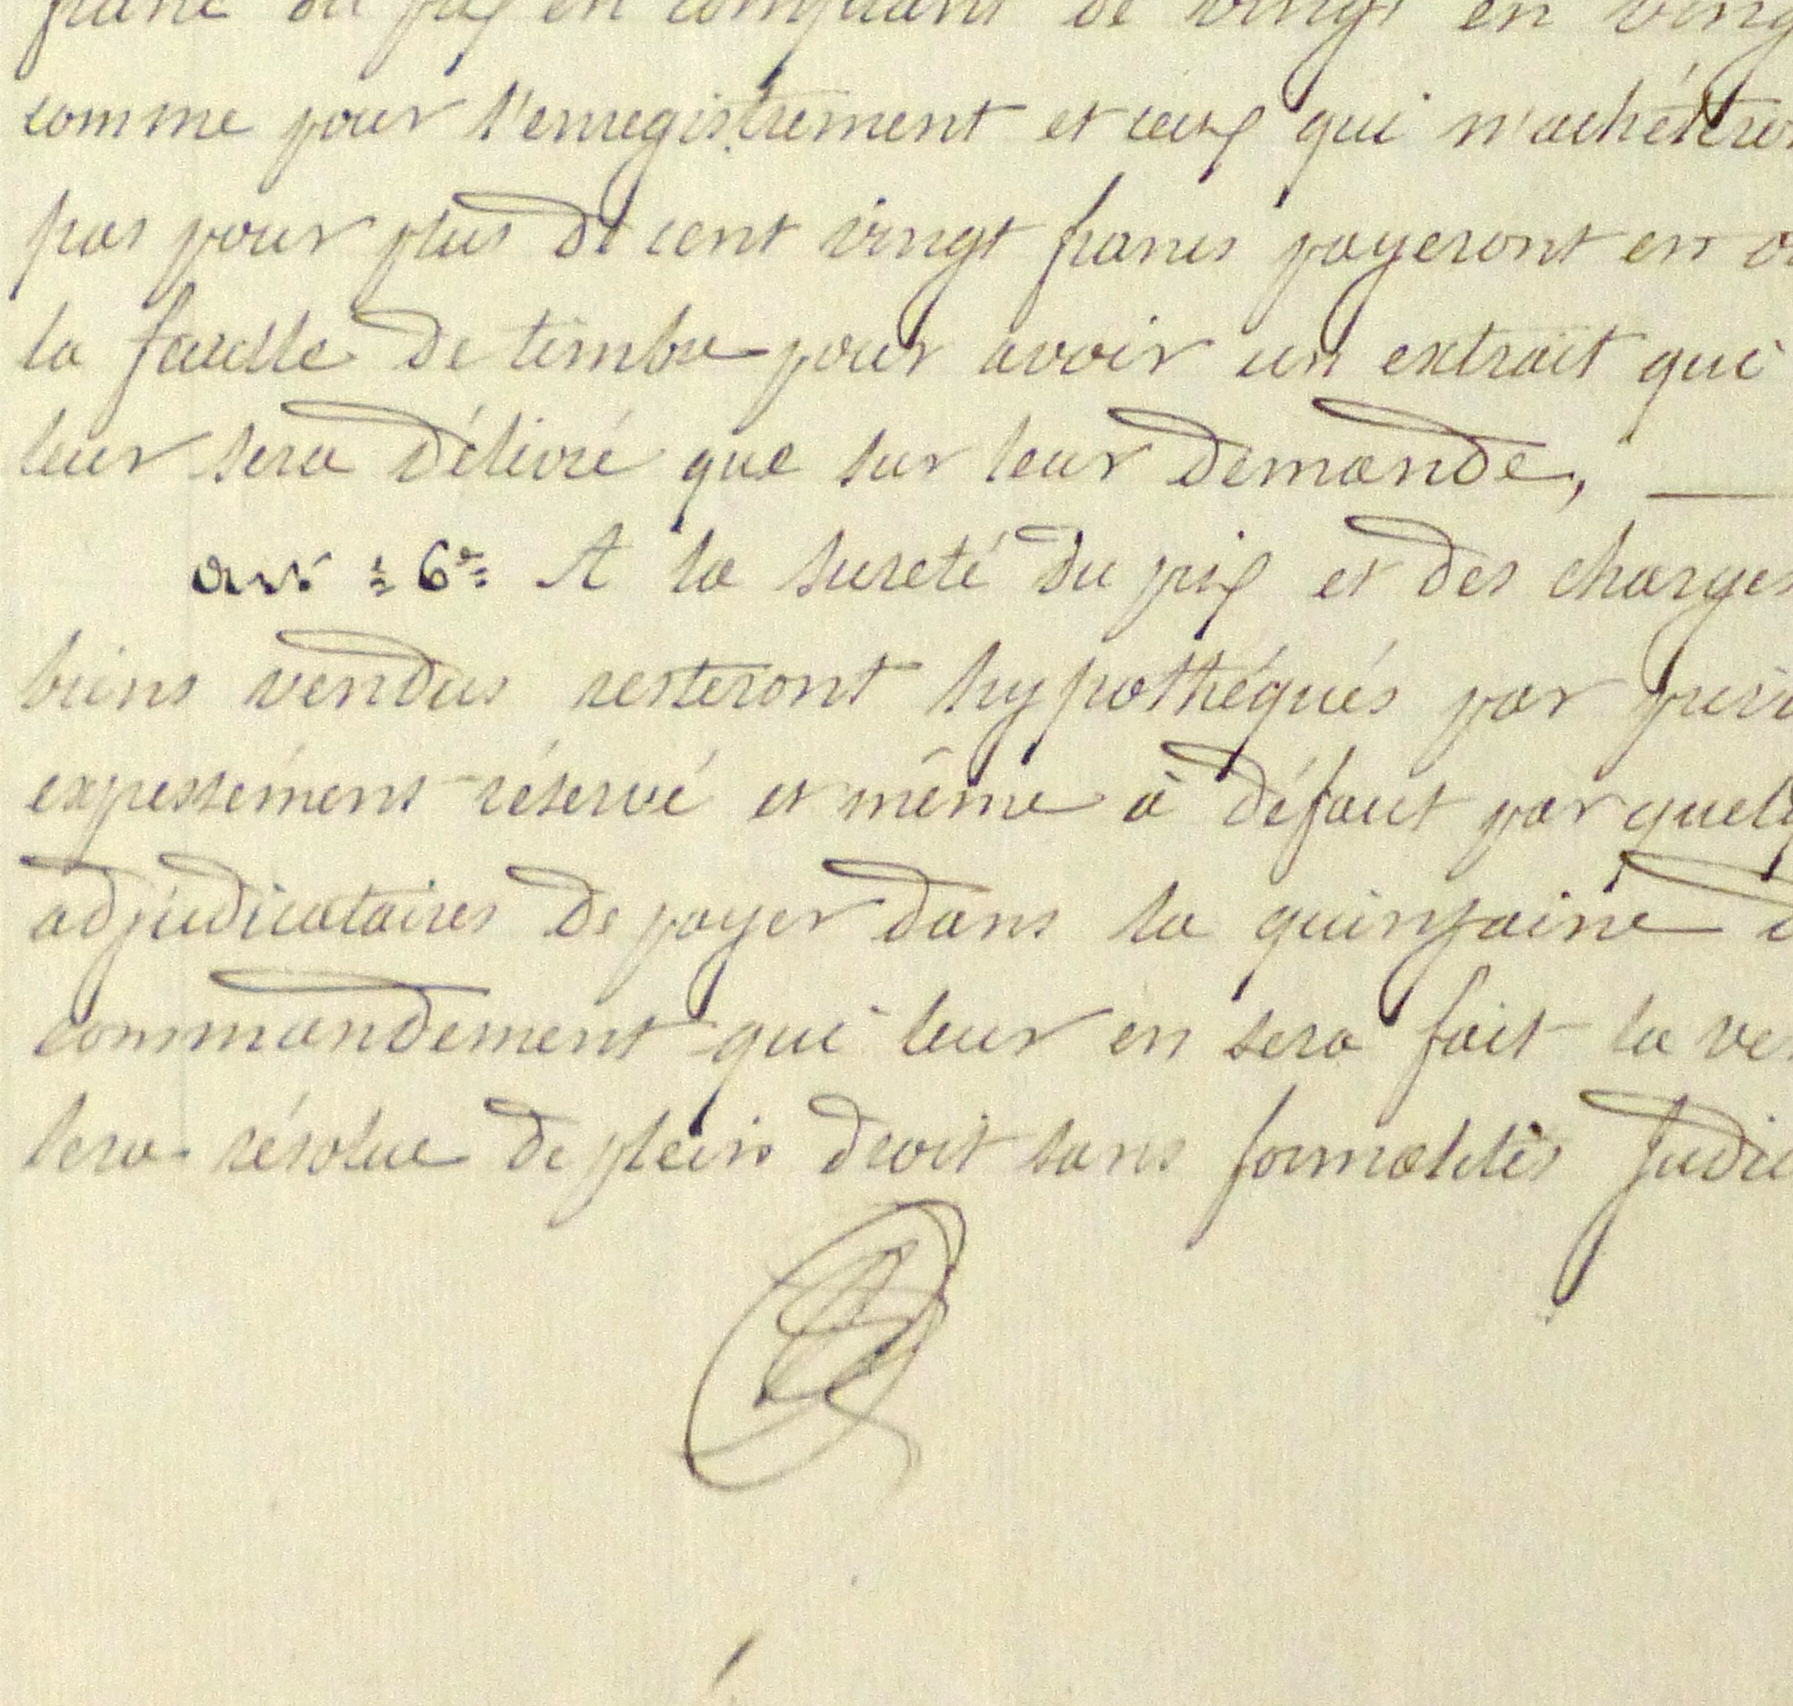 franc du prix en comptant de vingt en ving
comme pour l'enregistrement et ceux qui n'achéteron
pas pour plus de cent vingt francs payeront en o
la feuille de timbre pour avoir un extrait qui
leur sera délivré que sur leur demande,
art 6e A la sureté du prix et des charges
biens vendus resteront hypothéqués par privi
expessément réservé et même à défaut par quelq
adjudicataires de payer dans la quinzaine d
commandement qui leur en sera fait la ven
sera résolue de plein droit sans formalités Judic